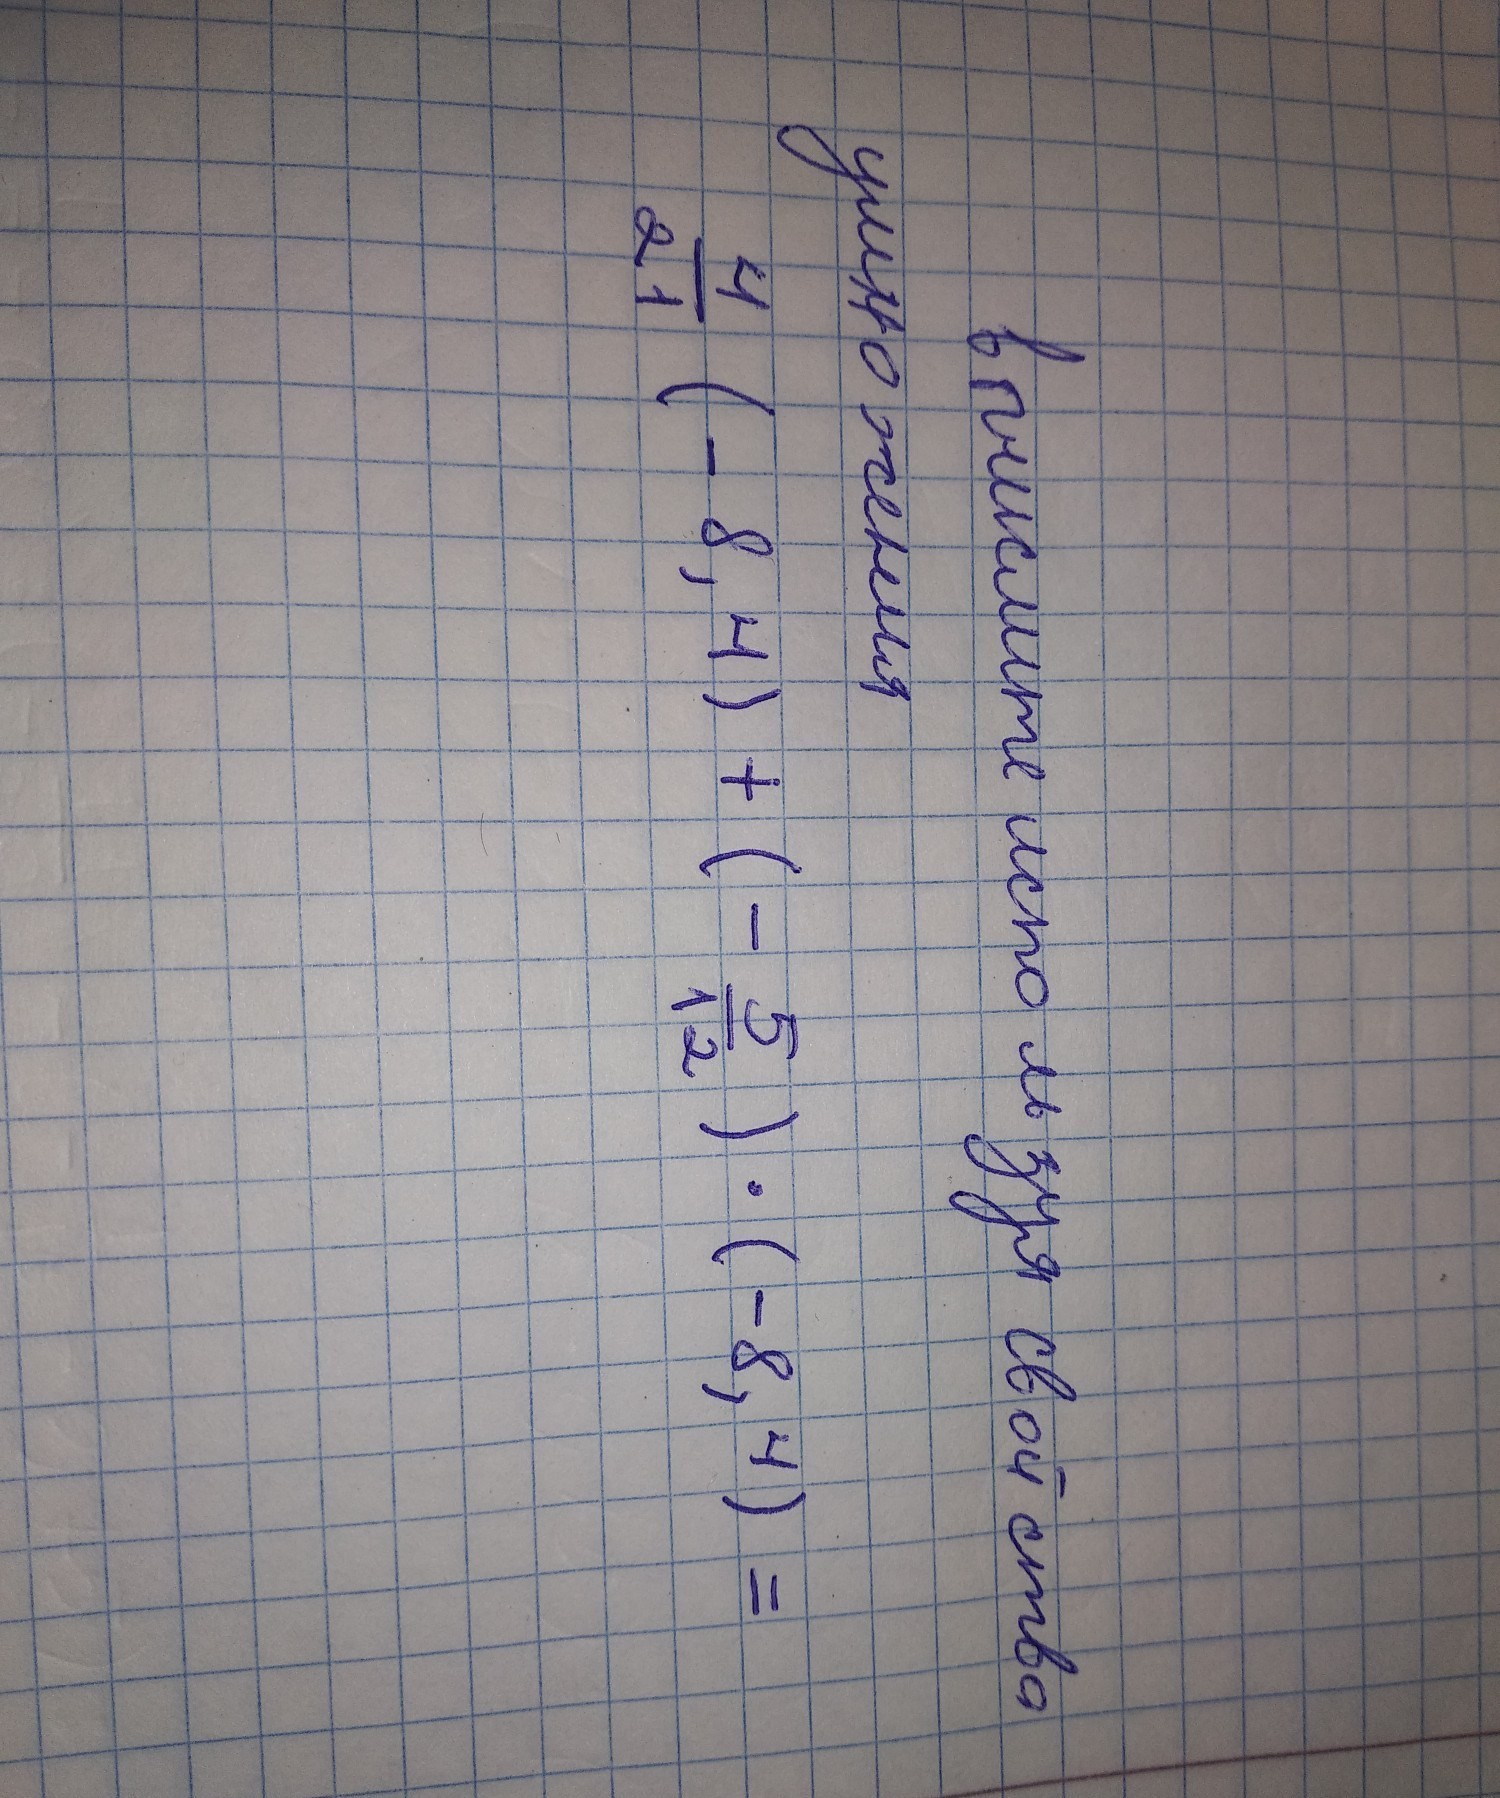 вычислите используя свойства
умножения
4/21 (- 8,4) + (- 5/12) · (-8,4) =